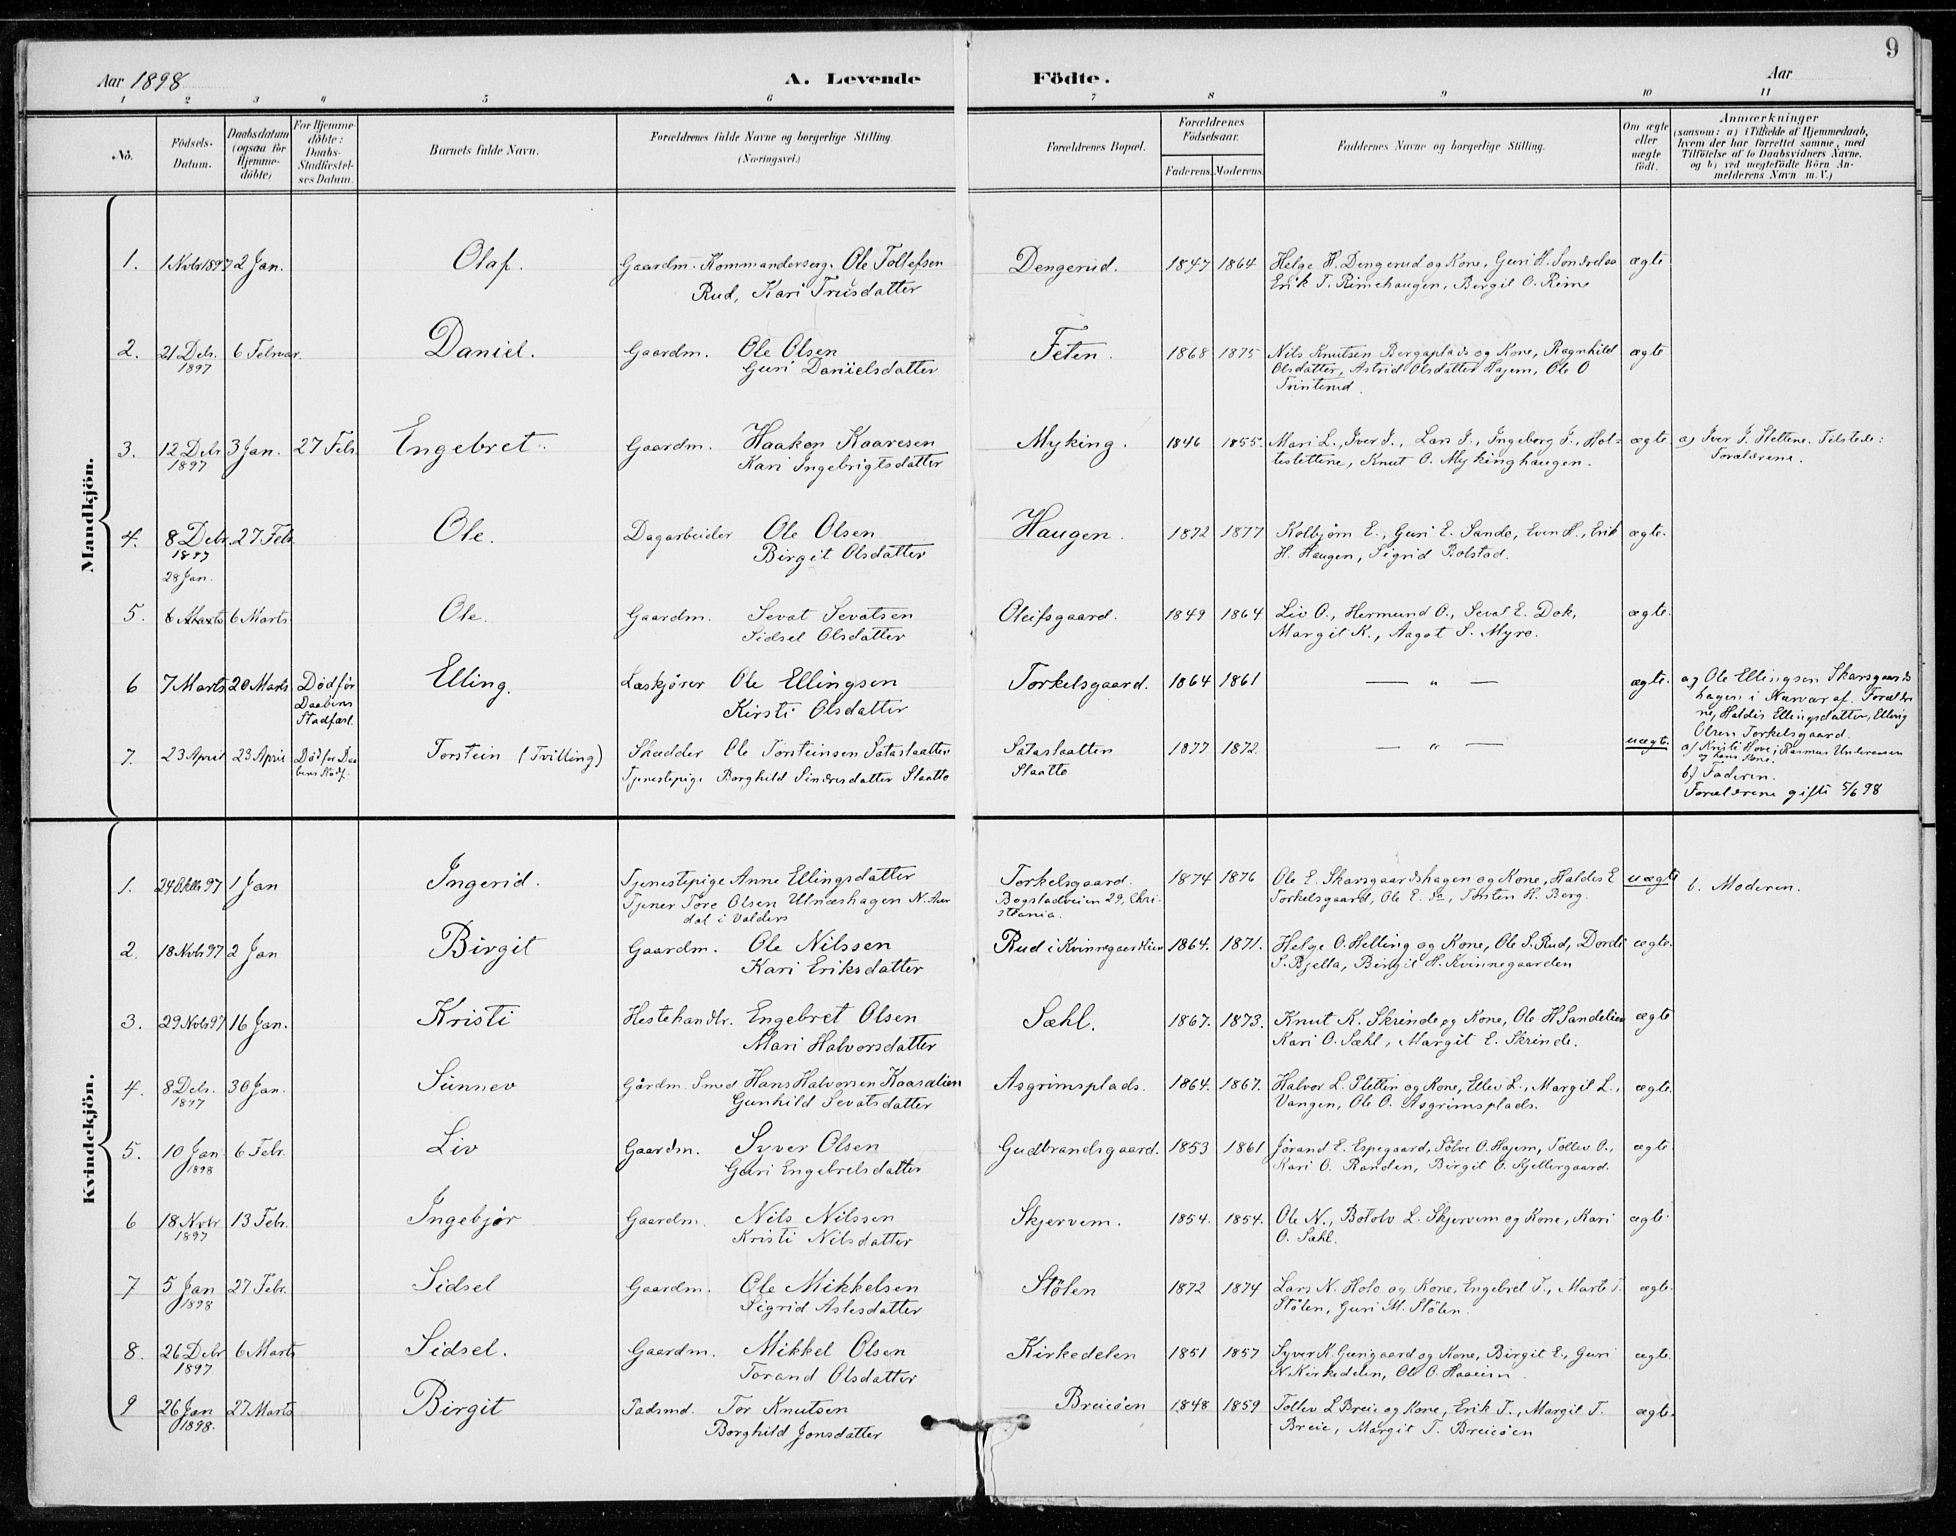 9
Aar 1898 A. Levende Födte. Aar
1 2 3 4 5 6 7 8 9 10 11
No. Födsels-Datum. Daabsdatum (ogsaa for Hjemme-döbte) For Hjemme-döbte: Daabs-Stadfæstel-ses Datum. Barnets fulde Navn. Forældrenes fulde Navne og borgerlige Stilling. (Næringsvei.) Forældrenes Bopæl. Forældrenes Födselsaar. Faderens. Moderens. Faddernes Navne og borgerlige Stilling. Om ægte eller uægte födt. Anmærkninger (saasom: a) i Tilfælde af Hjemmedaab, hvem der har forrettet samme, med Tilföielse af to Daabsvidners Navne, og b) ved uægtefödte Börn An-melderens Navn m. V.)
Mandkjön.
1. 1 Novbr 1897 2 Jan. Olaf. Gaardm. Kommanderserg. Ole Tollefsen Dengerud. 1847 1864 Helge H. Dengerud og Kone, Guri H. ægte
Rud, Kari Truisdatter Erik T. Rimehaugen, Birgit O. Rime
2. 21 Debr. 6 Februar. Daniel. Gaardm. Ole Olsen Feten. 1868 1875 Nils Knutsen Bergaplads og Kone, Ragnhild ægte
1897 Guri Danielsdatter Olsdatter, Astrid Olsdatter Hajem, Ole O
Trinterud.
3. 12 Debr. 3 Jan. 27 Febr. Engebret. Gaardm. Haakon Kaaresen Myking. 1846 1855. Mari L., Iver J., Lars J., Ingeborg J., Hol= ægte. a) Iver J. Slettene. Tilstede:
1897 Kari Ingebrigtsdatter teslettene, Knut O. Mykinghaugen. Forældrene.
4. 8 Debr. 27 Febr. Ole. Dagarbeider Ole Olsen Haugen. 1872 1877 Kolbjörn E., Guri E. Sando, Even H., Erik ægte.
1897 Birgit Olsdatter H. Haugen, Sigrid Bolstad.
28 Jan.
5. 6 Marts 6 Marts. Ole. Gaardm. Sevat Sevatsen Oleifsgaard. 1849 1864 Liv O., Hermund O., Sevat E. Dok, ægte.
Sidsel Olsdatter Margit K., Aagot S. Myro.
6 7 Marts 20 Marts. Död før Elling. Læskjører Ole Ellingsen Torkelsgaard. 1864 1861 — " — ægte. a) Ole Ellingsen Skarsgaards
Daabens Kirsti Olsdatter hagen i Nærvær af Forældre
Stadfæst. ne, Haldis Ellingsdatter, Elling
Olsen Torkelsgaard.
7. 23 April 23 April Död før Daa Torstein (Tvilling) Skrædder Ole Torsteinsen Sataslaatten Sataslaatten 1877 1872. — " — uægte. a) Kristi Hove, Rasmus Underaasen
bens Stadf. Tjenestepige Borghild Sindresdatter Slaatto Slaatto og hans Kone.
b) Faderen.
Forældrene gifte 5/6 98
Kvindekjön.
1. 24 Oktbr 97 1 Jan Ingerid. Tjenestepige Anne Ellingsdatter Torkelsgaard. 1874 1876 Ole E. Skarsgaardshagen og Kone, Haldis E uægte b. Moderen.
Tjener Tore Olsen Ulnæshagen N. Aur Bogstadveien 29, Chri- Torkelsgaard, Ole E. Sm, Torsten H. Berg.
dal i Valders stiania.
2. 18 Novbr 97 2 Jan Birgit Gaardm. Ole Nilssen Rud i Kvinnegaardslien 1864. 1871. Helge O. Helling og Kone, Ole S. Rud, Dordi ægte.
Kari Eriksdatter S. Bjella, Birgit H. Kvinnegaarden
3. 29 Novbr 97 16 Jan. Kristi Hestehandlr. Engebret Olsen Sæhl. 1867. 1873. Knut K. Skrinde og Kone, Ole H Sandelien ægte
Mari Halvorsdatter Kari O. Sæhl, Margit E. Skrinde.
4. 8 Debr. 30 Jan. Sünnev Gårdm. Smed Hans Halvorsen Kaasalien Asgrimsplads. 1864. 1867. Halvor L. Sletten og Kone, Ellev L., Margit L., ægte.
1897 Gunhild Sevatsdatter Vangen, Ole O. Asgrimsplads.
5. 10 Jan. 6 Febr. Liv Gaardm. Syver Olsen Gudbrandsgaard. 1853 1861 Jørand E. Espegaard, Sölve O. Hajem, Tollev O., ægte.
1898 Guri Engebretsdatter Kari O. Randen, Birgit O. Kjellergaard.
6 18 Novbr 13 Febr. Ingebjør Gaardm. Nils Nilssen Skjervem. 1854. 1854. Ole N., Botolv L. Skjervem og Kone, Kari ægte
1897 Kristi Nilsdatter O. Sæhl.
7 5 Jan 27 Febr. Sidsel Gaardm. Ole Mikkelsen Stölen 1872 1874 Lars N. Holo og Kone, Engebret T., Marte T. ægte.
1898 Sigrid Aslesdatter Stölen, Guri M. Stölen.
8. 26 Debr 6 Marts Sidsel. Gaardm. Mikkel Olsen Kirkedelen 1851 1857 Syver K. Gurigaard og Kone, Birgit E., Guri ægte.
1897 Torand Olsdatter N. Kirkedelen, Ole O. Haaheim
9 26 Jan 27 Marts Birgit Pladsmd. Tor Knutsen Breieöen 1848 1859 Tollev L Breie og Kone, Erik T., Margit T. ægte.
1898. Borghild Jonsdatter Breie, Margit T. Breieöen